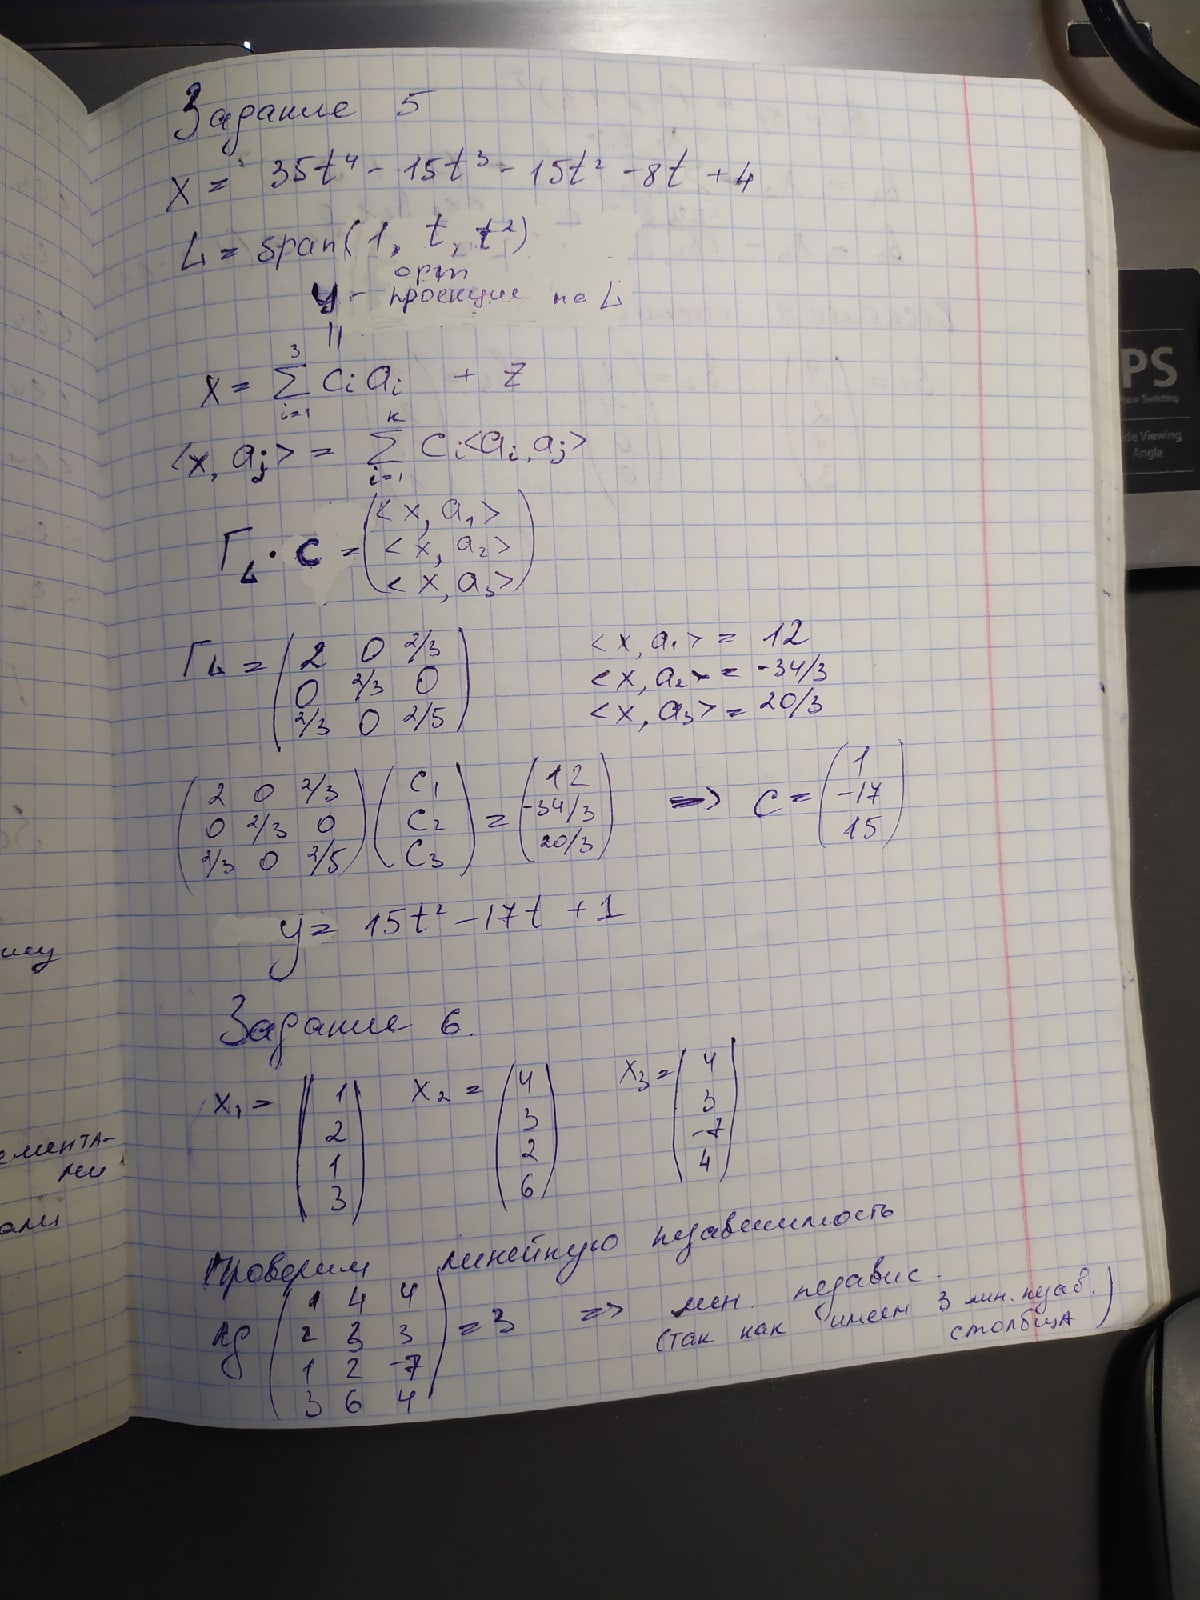 Задание 5
X = 35t⁴ - 15t³ - 15t² - 8t + 4
L = span(1, t, t²)
орт
y - проекция на L
||
X = ∑ᵢ₌₁³ Cᵢ aᵢ + z
<x, aⱼ> = ∑ᵢ₌₁ᵏ Cᵢ<aᵢ, aⱼ>
Γ_L · C = (<x, a₁>
<x, a₂>
<x, a₃>)
Γ_L = (2 0 2/3
0 2/3 0
2/3 0 2/5)
<x, a₁> = 12
<x, a₂> = -34/3
<x, a₃> = 20/3
(2 0 2/3
0 2/3 0
2/3 0 2/5) (C₁
C₂
C₃) = (12
-34/3
20/3) => C = (1
-17
15)
y = 15t² - 17t + 1
Задание 6.
X₁ = (1
2
1
3)
X₂ = (4
3
2
6)
X₃ = (4
3
-7
4)
Проверим линейную независимость
rg (1 4 4
2 3 3
1 2 -7
3 6 4) = 3 => лин. независ.
(так как имеем 3 лин. незав.
столбца)
PS
Viewing
Angle
ему
емента-
ми
ами